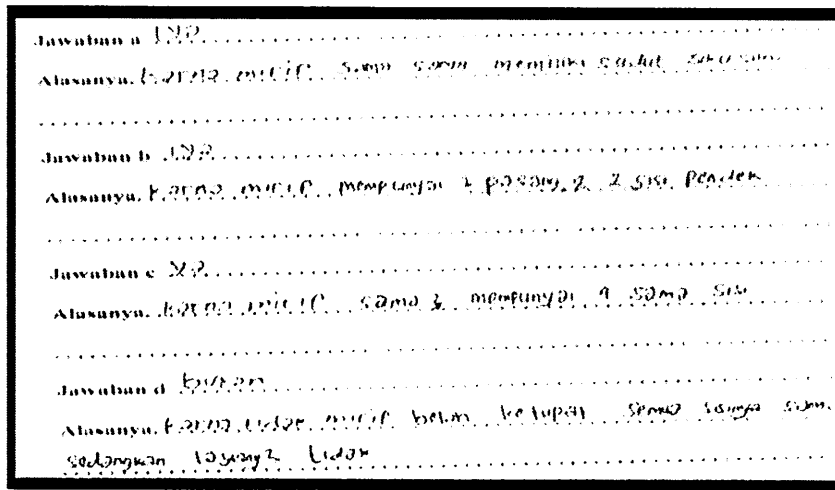 Jawaban a iya
Alasanya. karna mirip sama sama memiliki sudut siku siku
Jawaban b iya
Alasanya. karna mirip mempunyai pasang 2 sisi pendek
Jawaban c ya
Alasanya. karna mirip sama mempunyai sama sisi
Jawaban d bukan
Alasanya. karna tidak mirip belah ketupat semua sisinya sama
sedangkan tidak